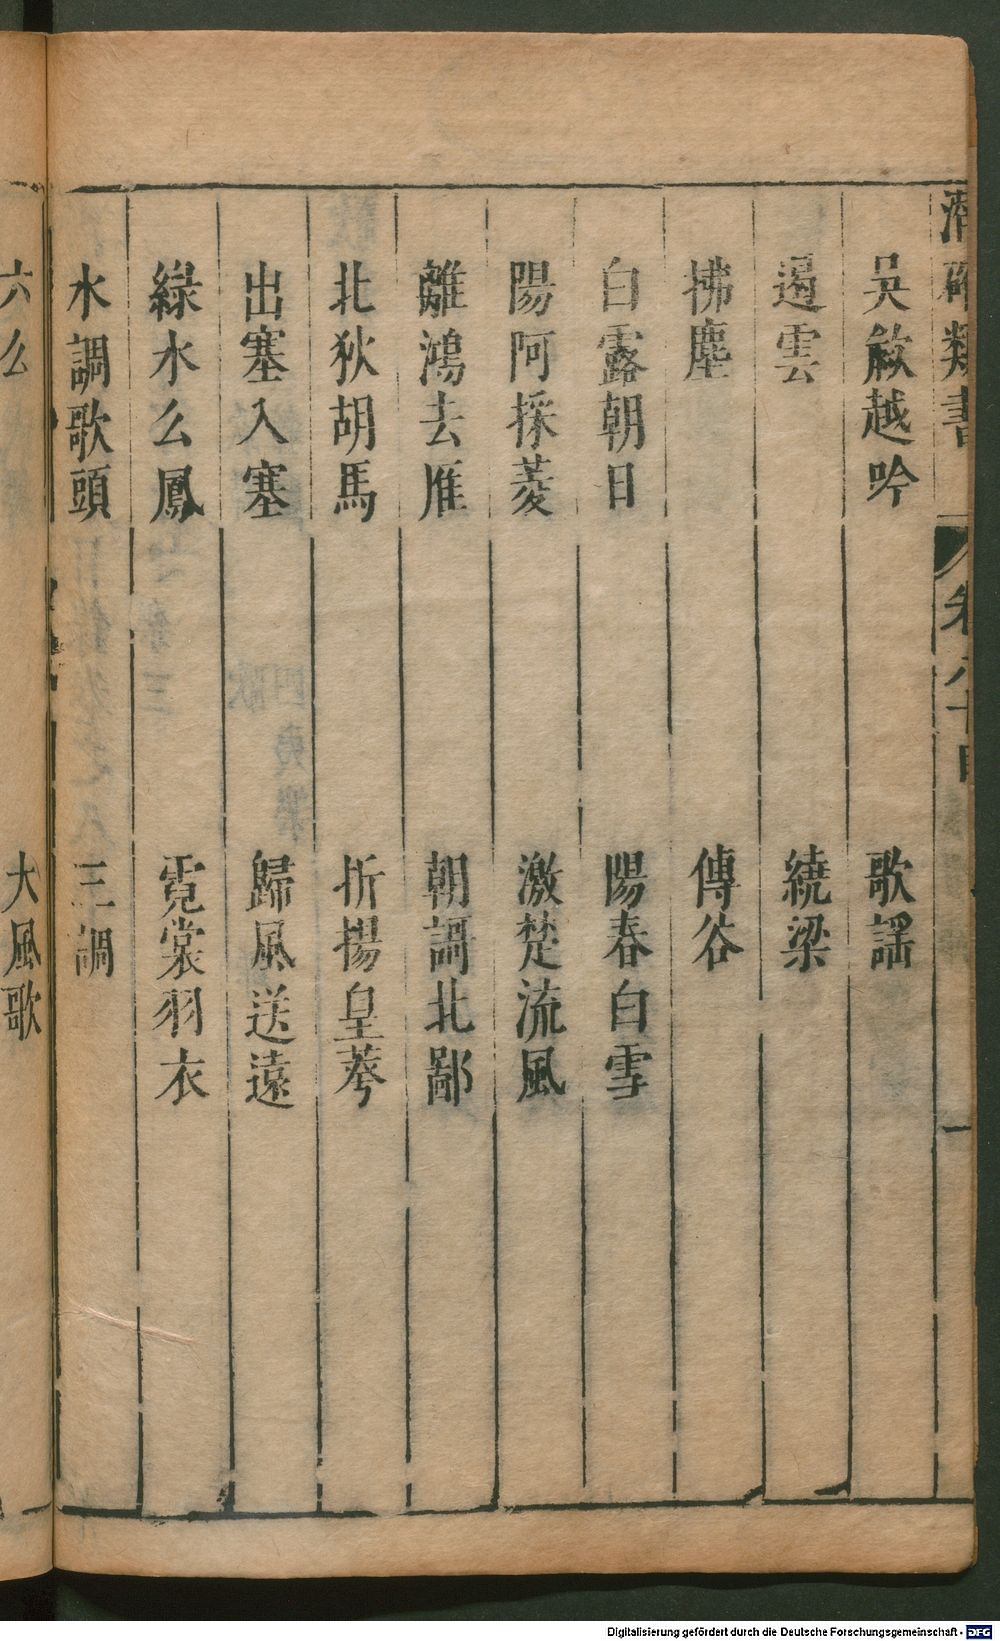 類書 卷八十四
吳歈越吟 歌謡
遏雲 繞梁
拂塵 傳谷
白露朝日 陽春白雪
陽阿採菱 激楚流風
離鴻去雁 朝謌北鄙
北狄胡馬 折揚皇荂
出塞入塞 歸風送遠
綠水么鳳 霓裳羽衣
水調歌頭 三調
六么 大風歌
Digitalisierung gefördert durch die Deutsche Forschungsgemeinschaft - DFG